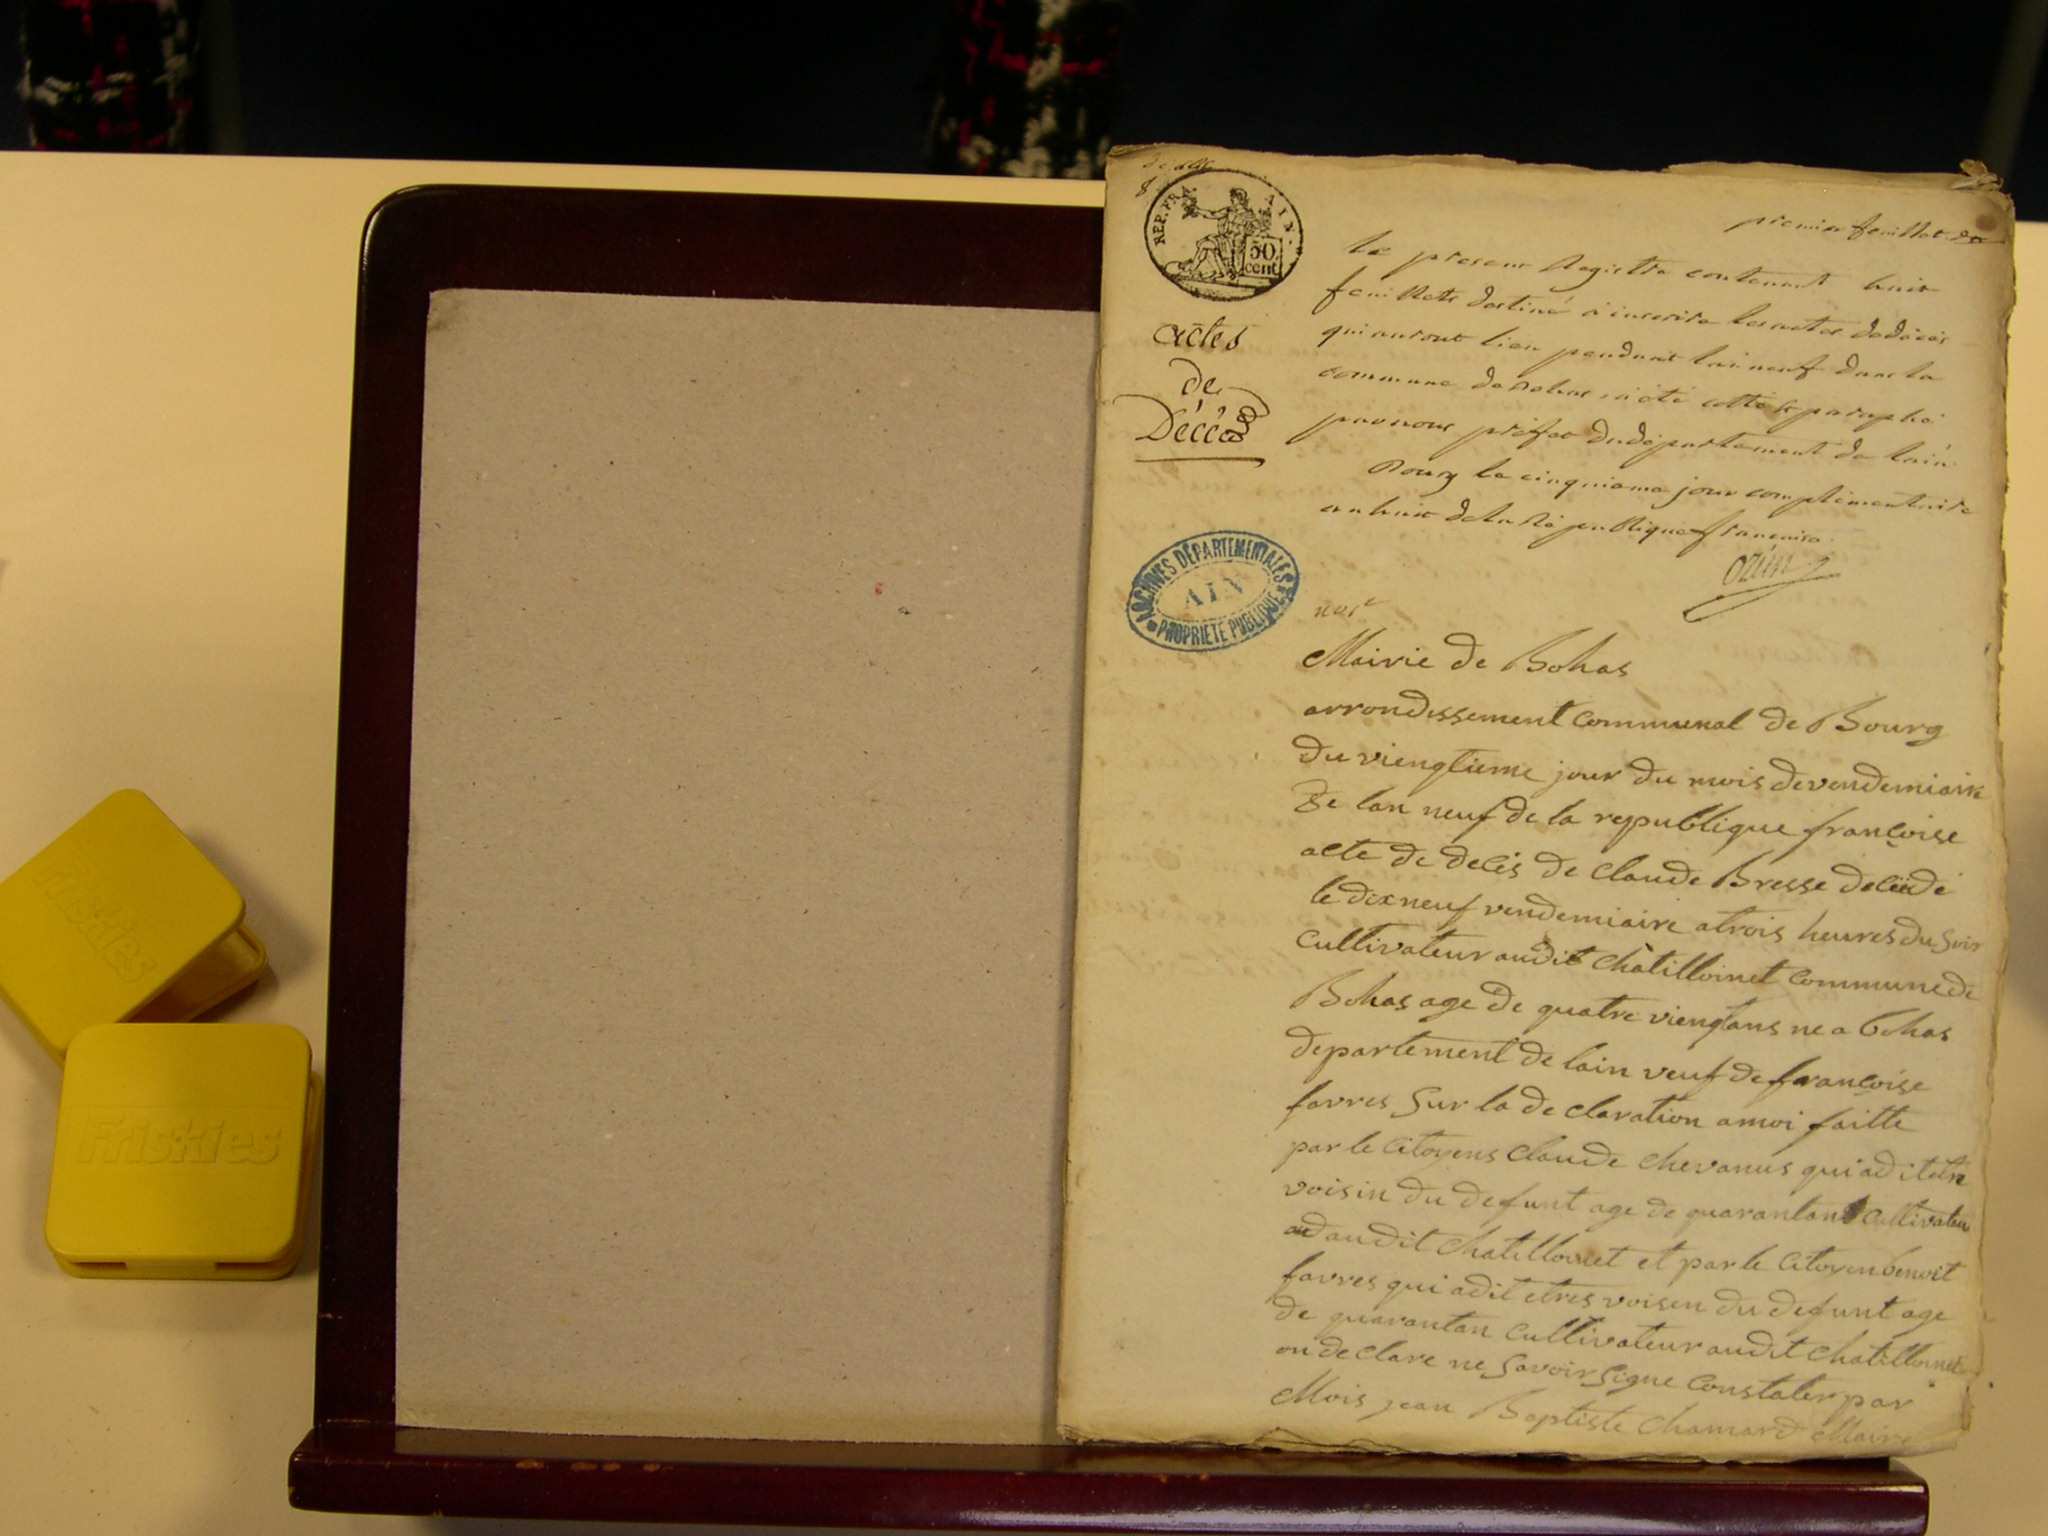 REP. FRA. AIN.
50
cent
premier feuillet
le present Registre contenant huit
feuillets destiné a inscrire les actes de décès
qui auront lieu pendant l'an neuf dans la
commune de Bohas, a été cotté & paraphé
par nous préfet du département de l'ain
Bourg le cinquieme jour complémentaire
an huit de la Republique francaise
ozun
actes
de
Décès
ARCHIVES DÉPARTEMENTALES
AIN
PROPRIÉTÉ PUBLIQUE
Mairie de Bohas
arrondissement communal de Bourg
du viengtieme jour du mois de vendemiaire
de lan neuf de la republique françoise
acte de decés de claude Bresse decédé
le dix neuf vendemiaire a trois heures du soir
cultivateur audit châtilloinet commune de
Bohas age de quatre viengtans ne a bohas
departement de lain veuf de françoise
favres sur la de claration a moi faitte
par le citoyens claude chevanus qui a dit etre
voisin du defunt age de quarantans cultivateur
audit chatillonet et par le citoyen benoit
favres qui a dit etres voisen du defunt age
de quarantan cultivateur audit chatilloinet
on de clare ne savoir signe constater par
Mois jean Baptiste chamard Maire
Friskies
Friskies